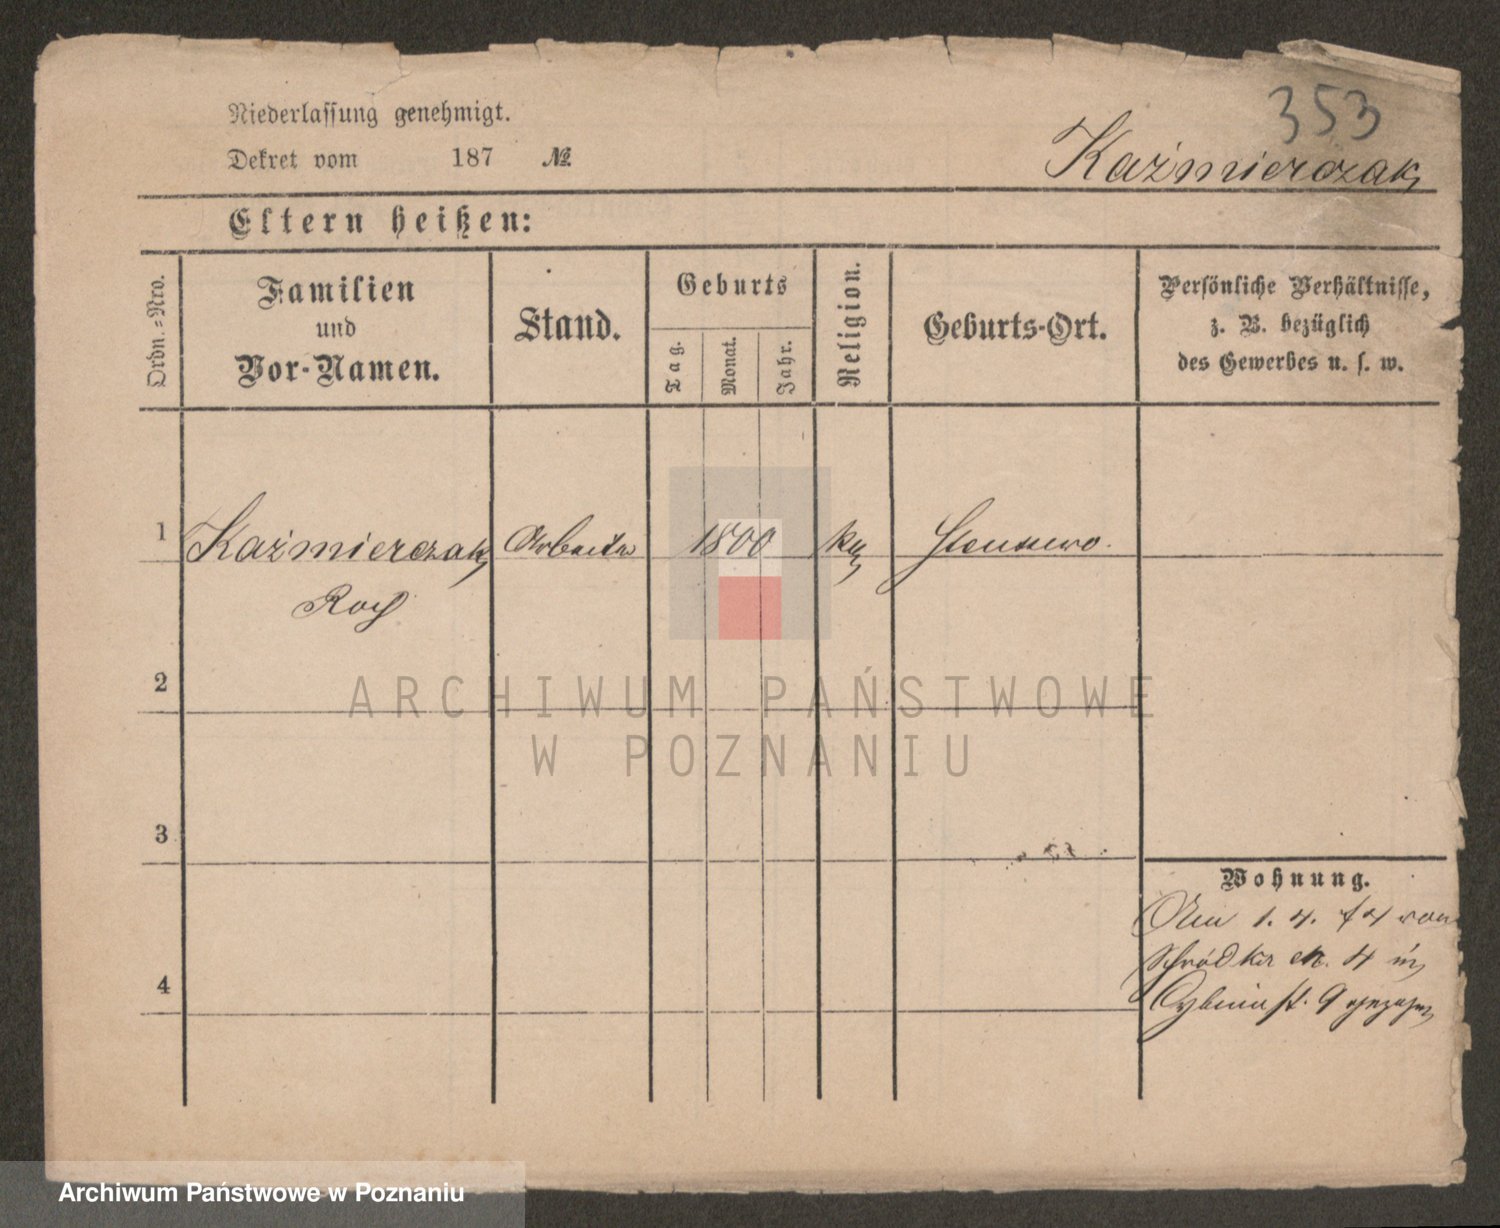 353
Niederlassung genehmigt.
Dekret vom 187 №
Kaźmierczak
Eltern heißen:
Ordn.=Nro.
Familien
und
Vor-Namen.
Stand.
Geburts
Tag.
Monat.
Jahr.
Religion.
Geburts-Ort.
Persönliche Verhältnisse,
z. B. bezüglich
des Gewerbes u. s. w.
1
Kaźmierczak Arbeiter 1800 Stenszewo.
Roch
2
ARCHIWUM PAŃSTWOWE
W POZNANIU
3
Wohnung.
1. 4. 74 von
Schródka 4
4
9
Archiwum Państwowe w Poznaniu